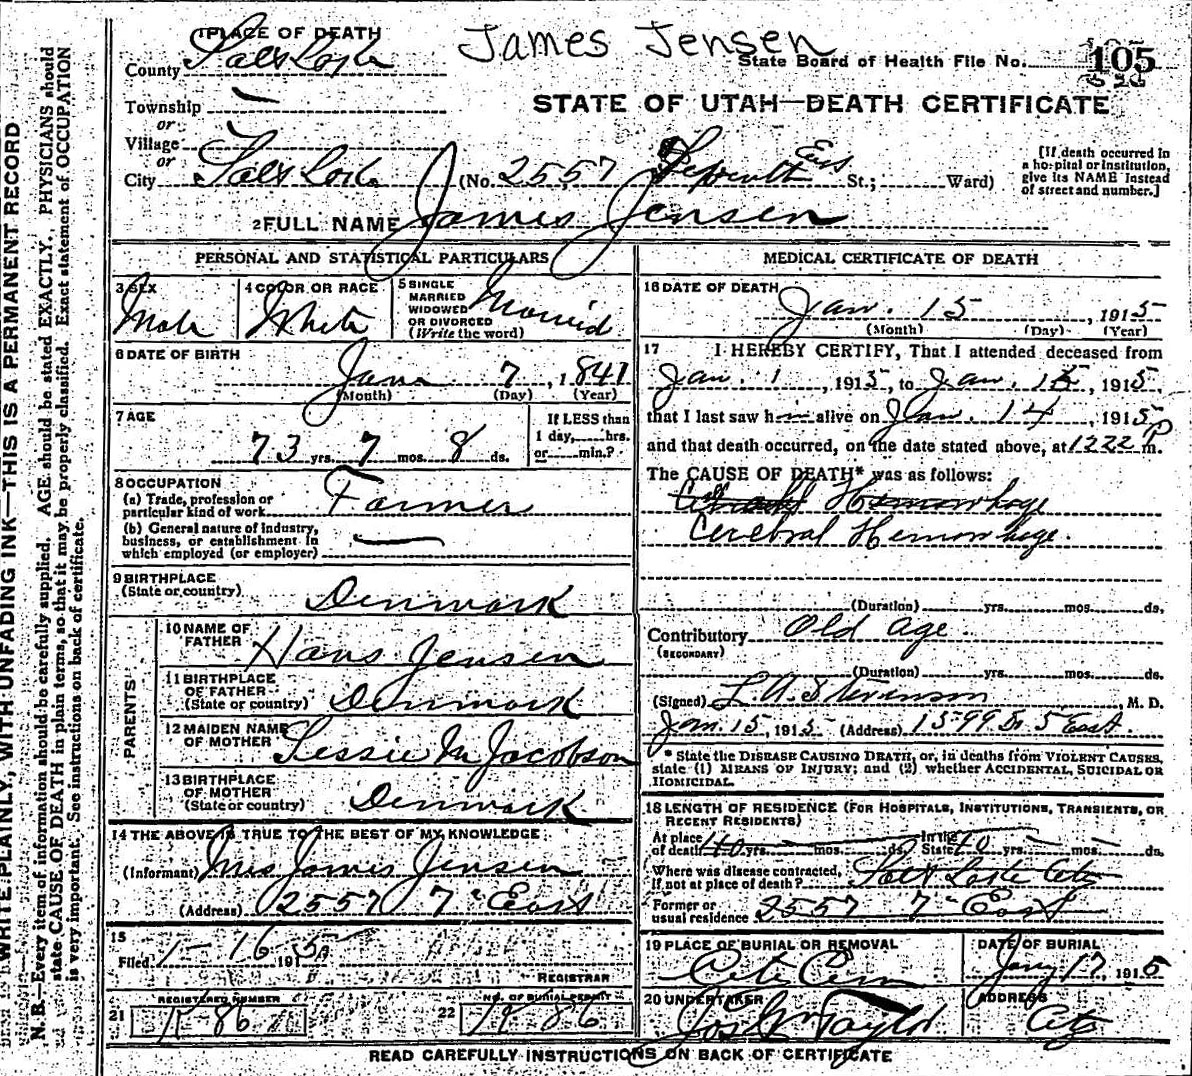 James Jensen
1 PLACE OF DEATH
County Salt Lake
State Board of Health File No. 105
Township
or
STATE OF UTAH—DEATH CERTIFICATE
Village
or
City Salt Lake (No. 2557 Seventh East St.; Ward)
[If death occurred in a hospital or institution, give its NAME instead of street and number.]
2 FULL NAME James Jensen
PERSONAL AND STATISTICAL PARTICULARS
3 SEX
Male
4 COLOR OR RACE
White
5 SINGLE MARRIED WIDOWED OR DIVORCED (Write the word)
Married
6 DATE OF BIRTH
Jan 7, 1841
(Month) (Day) (Year)
7 AGE
73 yrs. 7 mos. 8 ds.
If LESS than 1 day, hrs. or min.?
8 OCCUPATION
(a) Trade, profession or particular kind of work Farmer
(b) General nature of industry, business, or establishment in which employed (or employer)
9 BIRTHPLACE
(State or country) Denmark
PARENTS
10 NAME OF FATHER Hans Jensen
11 BIRTHPLACE OF FATHER (State or country) Denmark
12 MAIDEN NAME OF MOTHER Sessie M Jacobson
13 BIRTHPLACE OF MOTHER (State or country) Denmark
14 THE ABOVE IS TRUE TO THE BEST OF MY KNOWLEDGE
(Informant) Mrs James Jensen
(Address) 2557 7" East
15
Filed 1-16 1915
REGISTRAR
21 REGISTERED NUMBER
K-86
22 NO. OF BURIAL PERMIT
K 86
MEDICAL CERTIFICATE OF DEATH
16 DATE OF DEATH
Jan. 15, 1915
(Month) (Day) (Year)
17 I HEREBY CERTIFY, That I attended deceased from
Jan. 1, 1915, to Jan. 15, 1915
that I last saw h alive on Jan. 14, 1915
and that death occurred, on the date stated above, at 12 22 P m.
The CAUSE OF DEATH* was as follows:
Hemorrhage
Cerebral Hemorrhage.
(Duration) yrs. mos. ds.
Contributory Old age.
(SECONDARY)
(Duration) yrs. mos. ds.
(Signed) L. A. Stevenson, M. D.
Jan. 15, 1915 (Address) 1599 So 5 East.
* State the DISEASE CAUSING DEATH, or, in deaths from VIOLENT CAUSES, state (1) MEANS OF INJURY; and (2) whether ACCIDENTAL, SUICIDAL OR HOMICIDAL.
18 LENGTH OF RESIDENCE (FOR HOSPITALS, INSTITUTIONS, TRANSIENTS, OR RECENT RESIDENTS)
At place of death 40 yrs. mos. ds. In the State 40 yrs. mos. ds.
Where was disease contracted, if not at place of death? Salt Lake City
Former or usual residence 2557 7" East
19 PLACE OF BURIAL OR REMOVAL
City Cem
DATE OF BURIAL
Jany 17, 1915
20 UNDERTAKER
Jos Wm Taylor
ADDRESS
City
READ CAREFULLY INSTRUCTIONS ON BACK OF CERTIFICATE
WRITE PLAINLY, WITH UNFADING INK—THIS IS A PERMANENT RECORD
N. B.—Every item of information should be carefully supplied. AGE should be stated EXACTLY. PHYSICIANS should
state CAUSE OF DEATH in plain terms, so that it may be properly classified. Exact statement of OCCUPATION
is very important. See instructions on back of certificate.